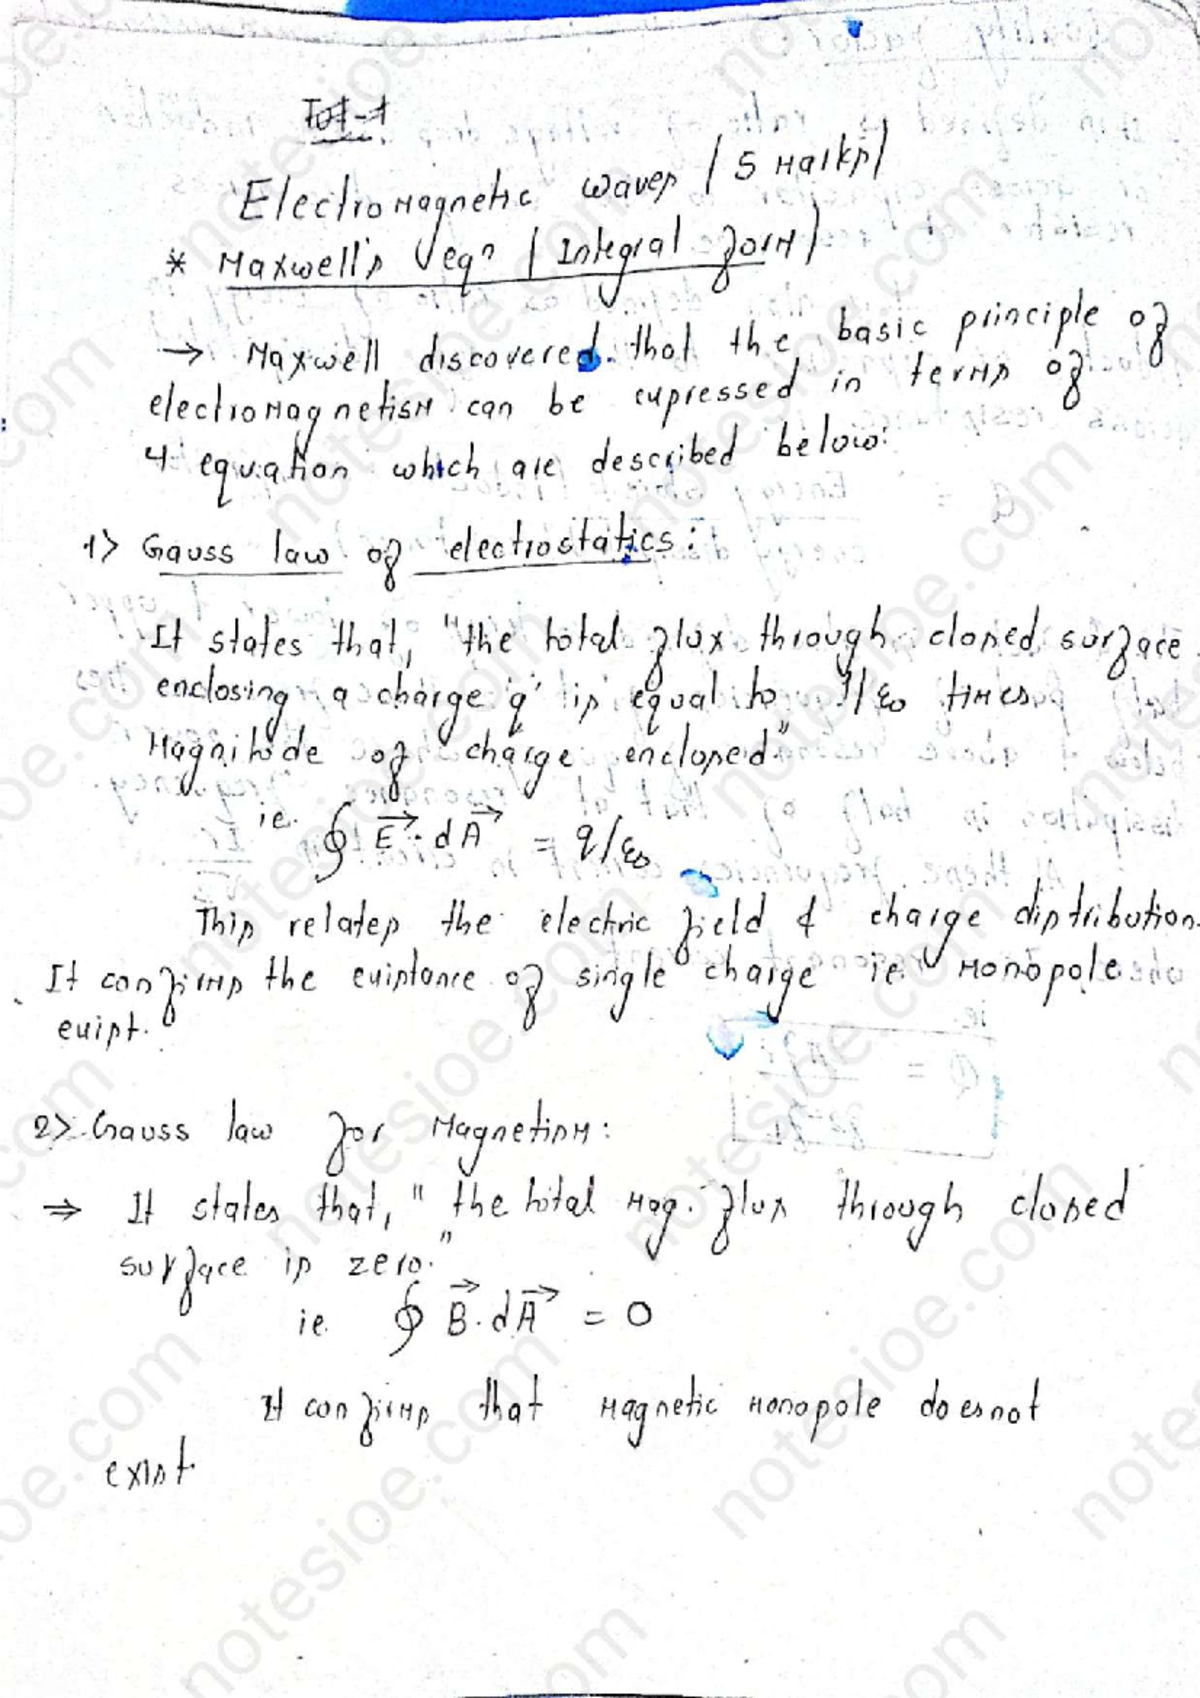 Electromagnetic waves (5 marks)
* Maxwell's eqn (Integral form)
→ Maxwell discovered that the basic principle of
electromagnetism can be expressed in terms of
4 equation which are described below:
1> Gauss law of electrostatics:
It states that, "the total flux through closed surface
enclosing a charge 'q' is equal to 1/ε0 times
magnitude of charge enclosed"
ie. ∮ E⃗ · dA⃗ = q/ε0
This relates the electric field & charge distribution.
It confirms the existance of single charge ie. monopole
exist.
2> Gauss law for magnetism:
⇒ It states that, "the total mag. flux through closed
surface is zero."
ie. ∮ B⃗ · dA⃗ = 0
It confirms that magnetic monopole doesnot
exist.
notesioe.com